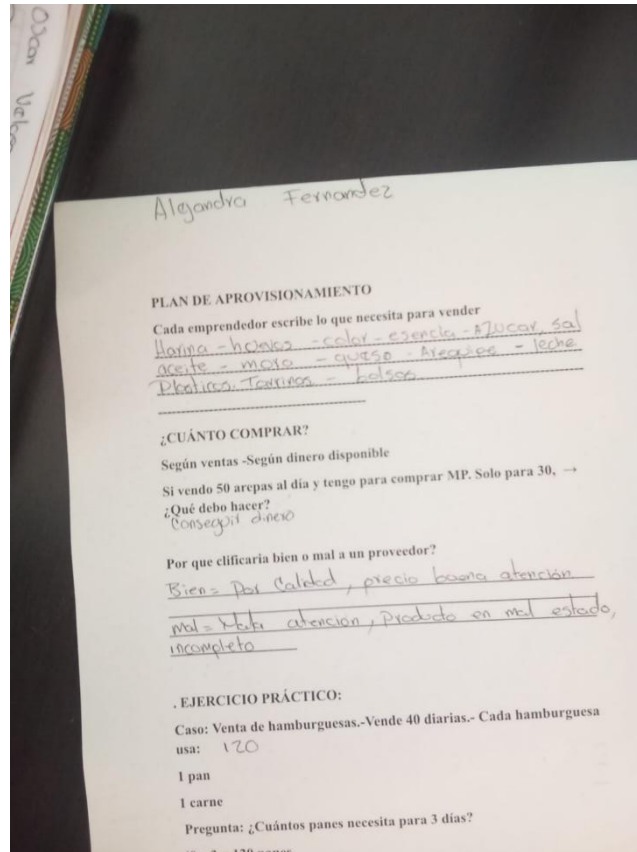 Oscar
Alejandra Fernandez
PLAN DE APROVISIONAMIENTO
Cada emprendedor escribe lo que necesita para vender
Harina - huevos - color - esencia - Azucar, sal
aceite - mora - queso - Arequipe - leche
Plasticos. Tarrinas - bolsas
¿CUÁNTO COMPRAR?
Según ventas -Según dinero disponible
Si vendo 50 arepas al día y tengo para comprar MP. Solo para 30, →
¿Qué debo hacer?
Conseguir dinero
Por que clificaria bien o mal a un proveedor?
Bien = Por Calidad, precio buena atención
mal = Mala atención, Producto en mal estado,
incompleto
. EJERCICIO PRÁCTICO:
Caso: Venta de hamburguesas.-Vende 40 diarias.- Cada hamburguesa
usa: 120
1 pan
1 carne
Pregunta: ¿Cuántos panes necesita para 3 días?